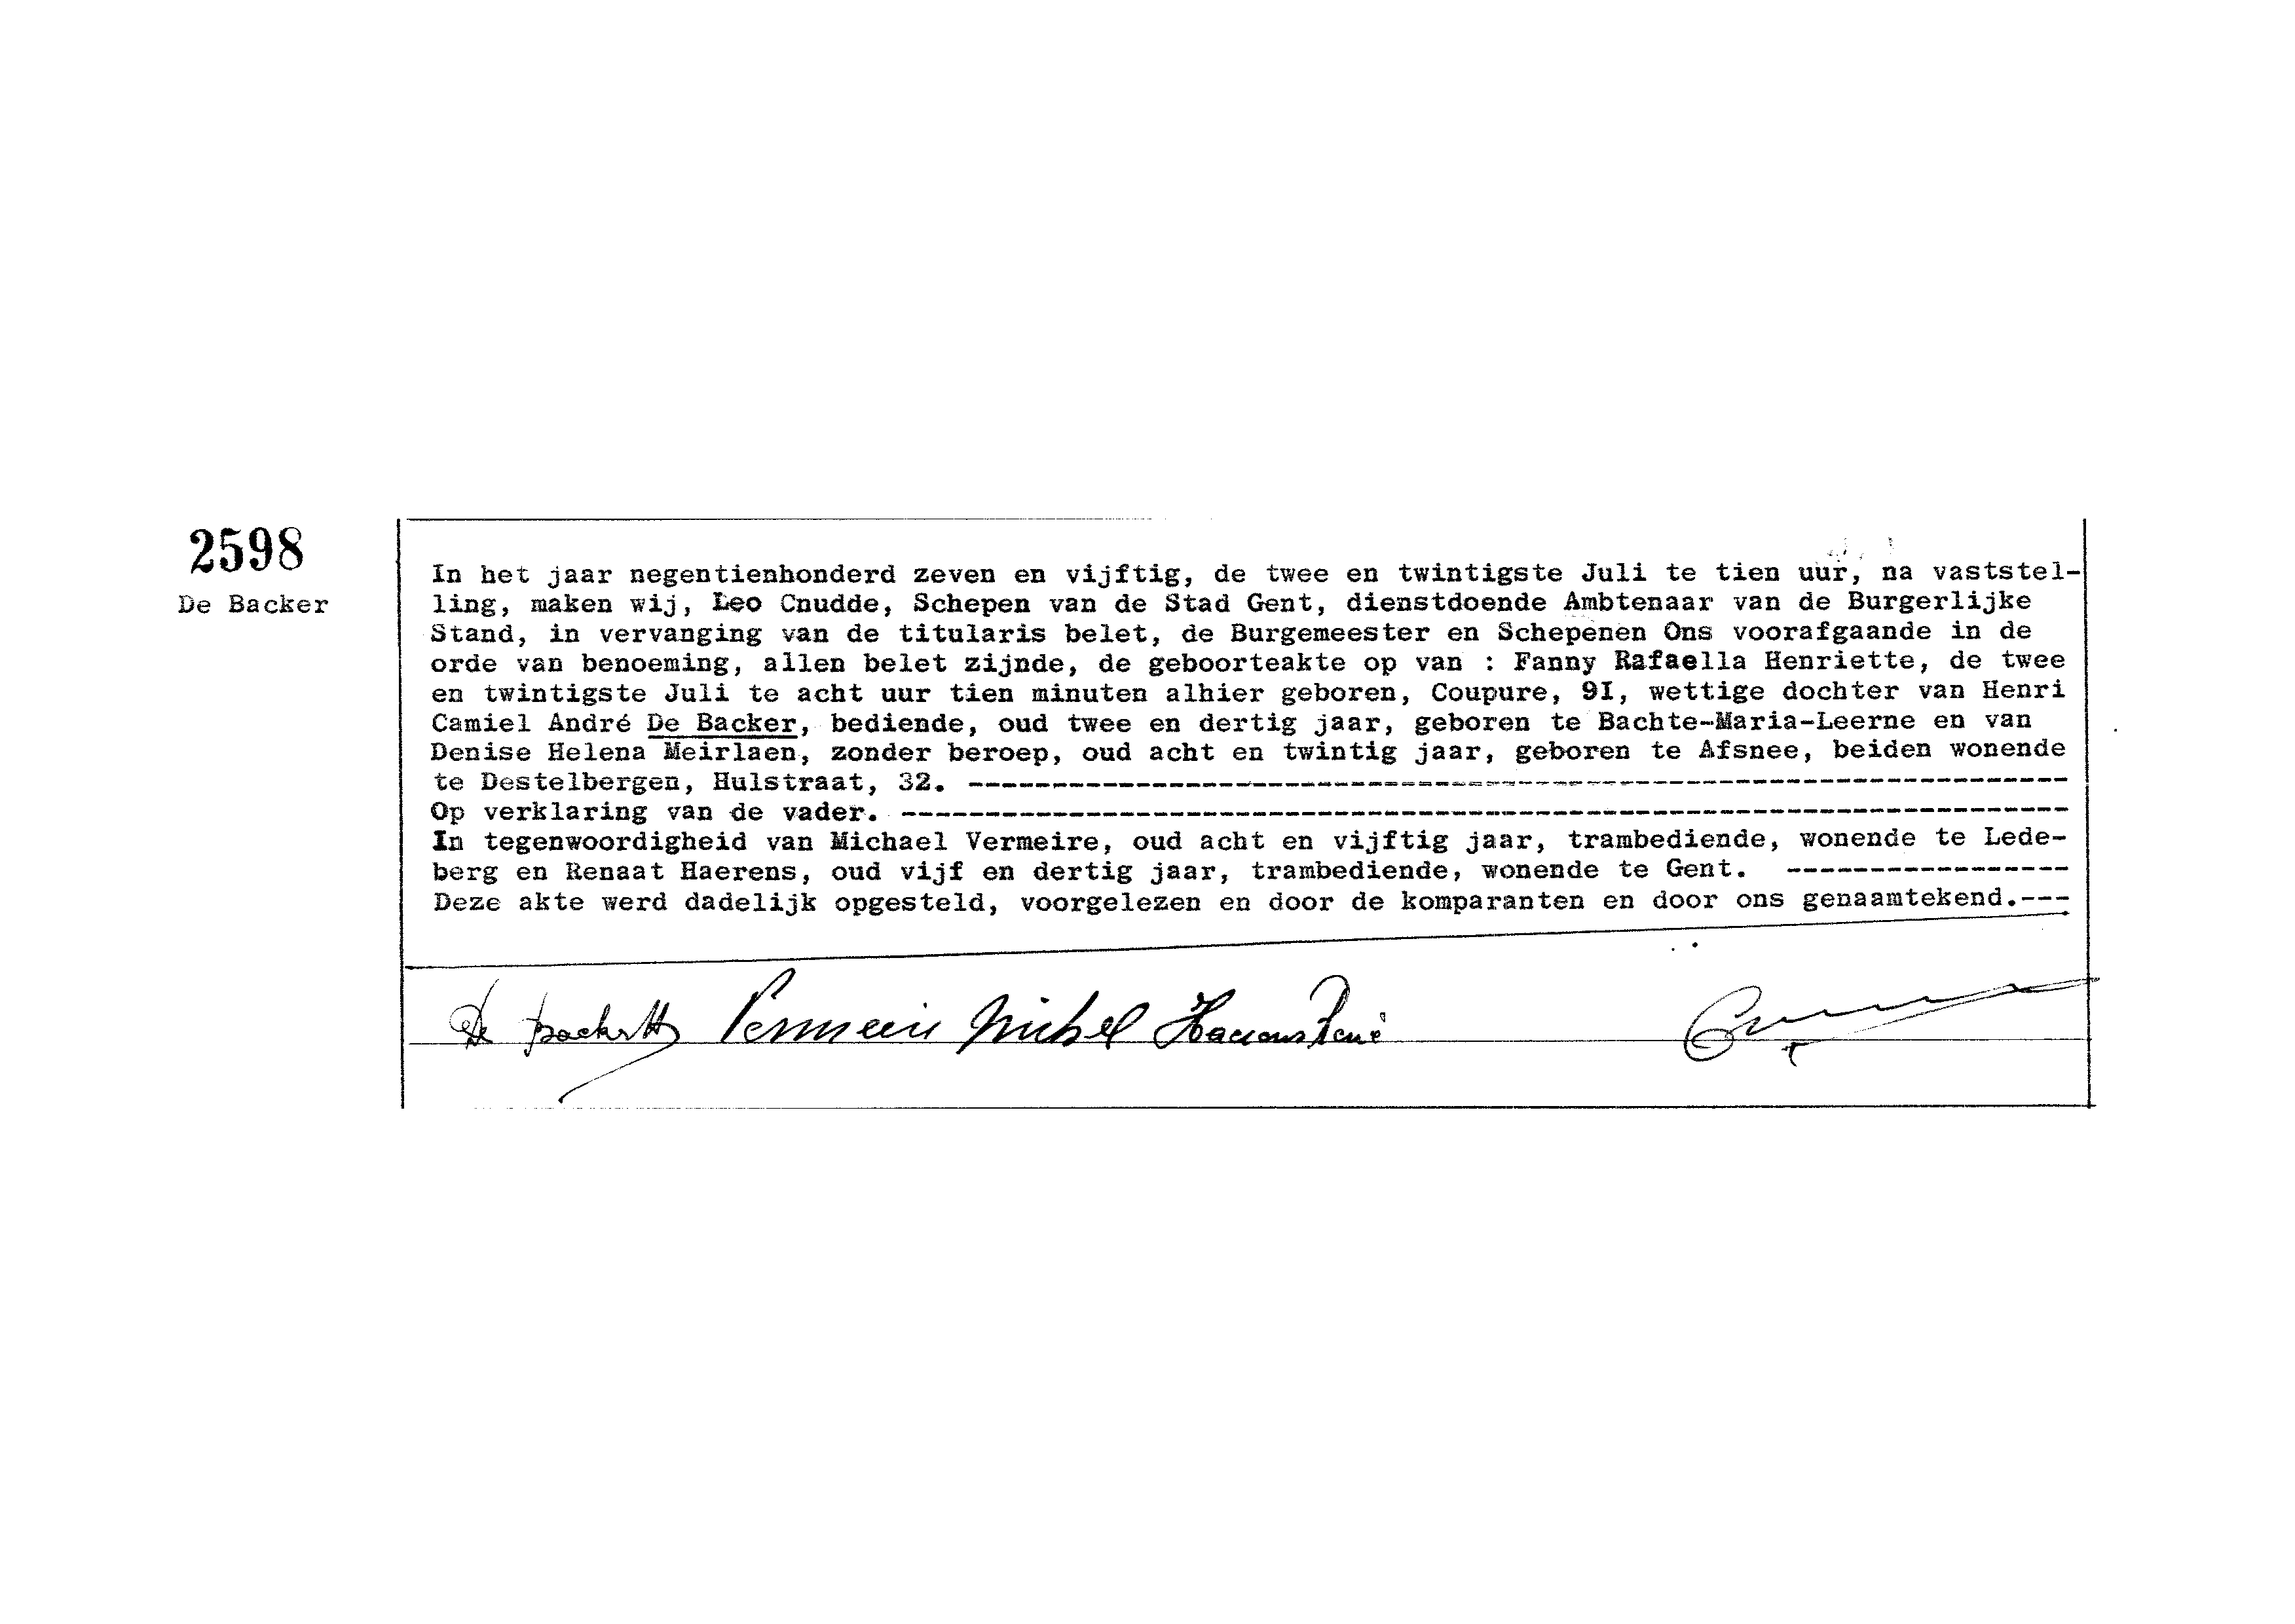 2598
De Backer
In het jaar negentienhonderd zeven en vijftig, de twee en twintigste Juli te tien uur, na vaststel-
ling, maken wij, Leo Cnudde, Schepen van de Stad Gent, dienstdoende Ambtenaar van de Burgerlijke
Stand, in vervanging van de titularis belet, de Burgemeester en Schepenen Ons voorafgaande in de
orde van benoeming, allen belet zijnde, de geboorteakte op van : Fanny Rafaella Henriette, de twee
en twintigste Juli te acht uur tien minuten alhier geboren, Coupure, 9I, wettige dochter van Henri
Camiel André De Backer, bediende, oud twee en dertig jaar, geboren te Bachte-Maria-Leerne en van
Denise Helena Meirlaen, zonder beroep, oud acht en twintig jaar, geboren te Afsnee, beiden wonende
te Destelbergen, Hulstraat, 32. ----------------------------------------------------------------
Op verklaring van de vader. --------------------------------------------------------------------
In tegenwoordigheid van Michael Vermeire, oud acht en vijftig jaar, trambediende, wonende te Lede-
berg en Renaat Haerens, oud vijf en dertig jaar, trambediende, wonende te Gent. -----------------
Deze akte werd dadelijk opgesteld, voorgelezen en door de komparanten en door ons genaamtekend.---
De Vermeire Michel Haerens René